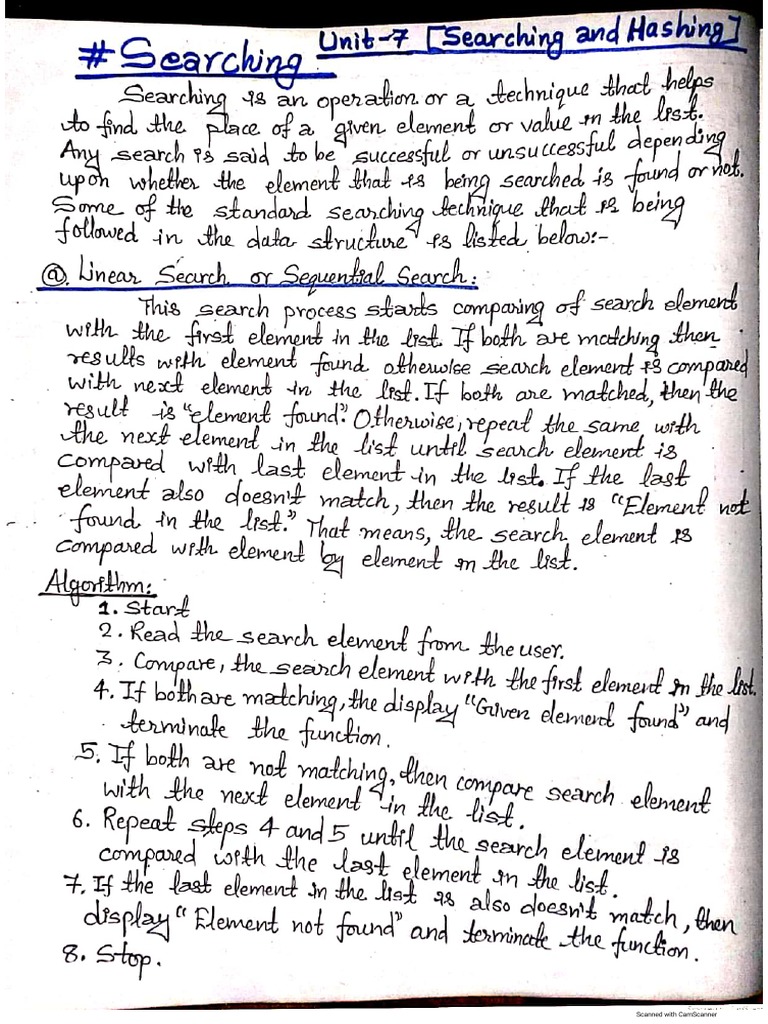 Unit-7 [Searching and Hashing]
# Searching
Searching is an operation or a technique that helps
to find the place of a given element or value in the list.
Any search is said to be successful or unsuccessful depending
upon whether the element that is being searched is found or not.
Some of the standard searching technique that is being
followed in the data structure is listed below:-
(a). Linear Search or Sequential Search:
This search process starts comparing of search element
with the first element in the list. If both are matching then
results with element found otherwise search element is compared
with next element in the list. If both are matched, then the
result is "element found". Otherwise, repeat the same with
the next element in the list until search element is
compared with last element in the list. If the last
element also doesn't match, then the result is "Element not
found in the list." That means, the search element is
compared with element by element in the list.
Algorithm:
1. Start
2. Read the search element from the user.
3. Compare, the search element with the first element in the list.
4. If both are matching, the display "Given element found" and
terminate the function.
5. If both are not matching, then compare search element
with the next element in the list.
6. Repeat steps 4 and 5 until the search element is
compared with the last element in the list.
7. If the last element in the list is also doesn't match, then
display "Element not found" and terminate the function.
8. Stop.
Scanned with CamScanner